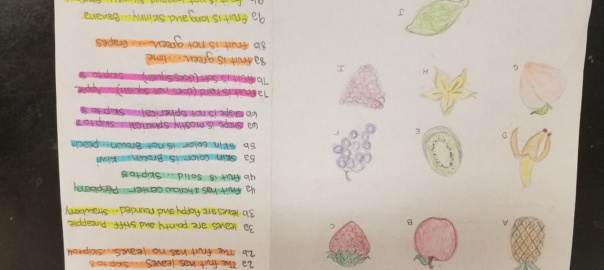 2a The fruit has leaves Skip to 3
2b The fruit has no leaves skip to 4
3a leaves are pointy and stiff Pineapple
3b leaves are floppy and rounded Strawberry
4a fruit has a hollow center Raspberry
4b fruit is solid skip to
5a skin color is Brown Kiwi
5b skin color is not Brown
6a shape is mostly spherical skip to 7
6b shape is not spherical skip to
7a fruit is hard (does not squish) Apple
7b fruit is soft (does squish) skip to
8a fruit is green lime
8b fruit is not green Grapes
9a fruit is long and skinny Banana
9b fruit is not
A
B
C
D
E
F
G
H
I
J